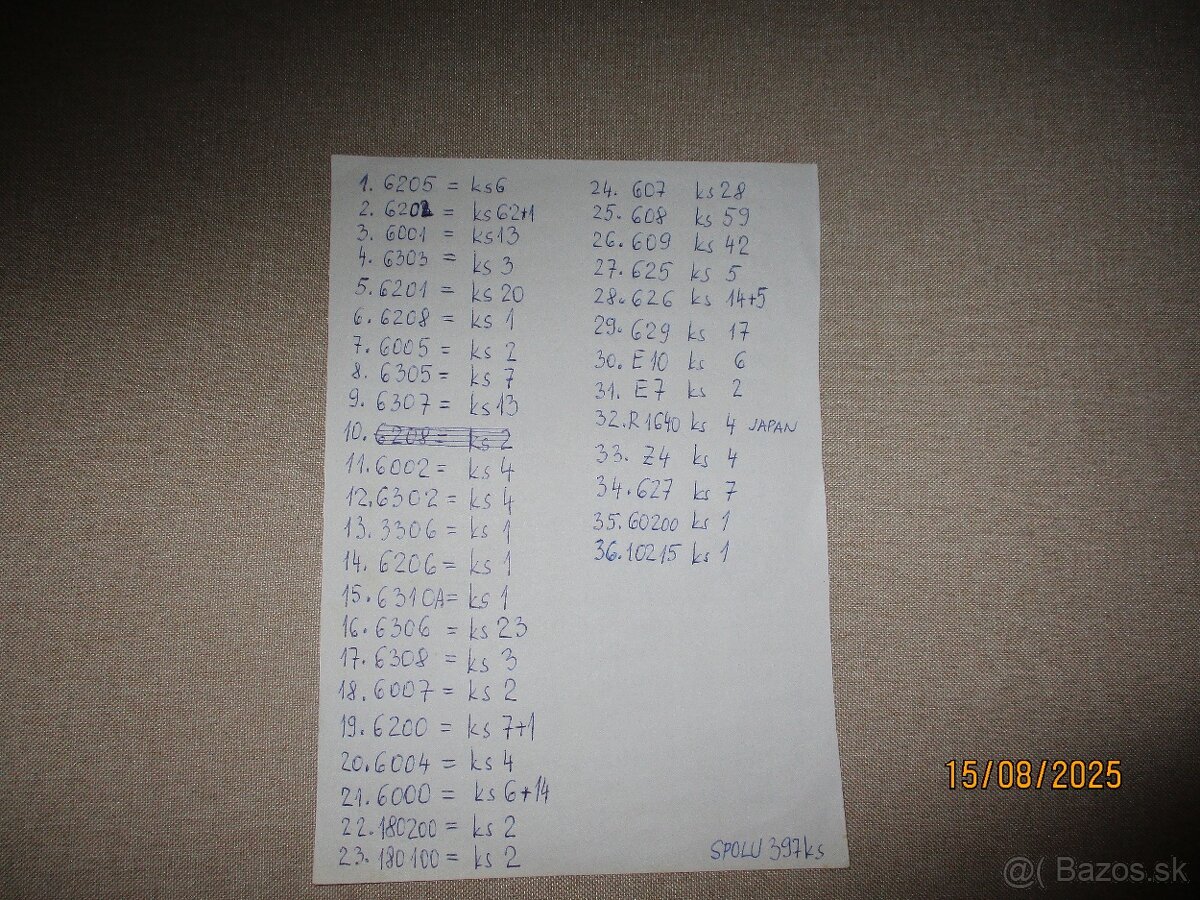 1. 6205 = ks6
2. 6202 = ks 62+1
3. 6001 = ks13
4. 6303 = ks 3
5. 6201 = ks 20
6. 6208 = ks 1
7. 6005 = ks 2
8. 6305 = ks 7
9. 6307 = ks 13
10. 6208 = ks 2
11. 6002 = ks 4
12. 6302 = ks 4
13. 3306 = ks 1
14. 6206 = ks 1
15. 6310A= ks 1
16. 6306 = ks 23
17. 6308 = ks 3
18. 6007 = ks 2
19. 6200 = ks 7+1
20. 6004 = ks 4
21. 6000 = ks 6+14
22. 180200 = ks 2
23. 180100 = ks 2
24. 607 ks 28
25. 608 ks 59
26. 609 ks 42
27. 625 ks 5
28. 626 ks 14+5
29. 629 ks 17
30. E10 ks 6
31. E7 ks 2
32. R1640 ks 4 JAPAN
33. Z4 ks 4
34. 627 ks 7
35. 60200 ks 1
36. 10215 ks 1
SPOLU 397ks
15/08/2025
@( Bazos.sk